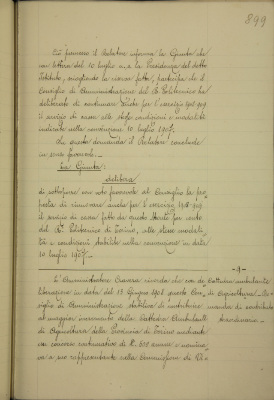 899
Si premette il Relatore informa la Giunta che
con lettera del 10 luglio u.s. la Presidenza del detto
Istituto, accogliendo la ricerca fatta, partecipa che il
Consiglio di Amministrazione del R. Politecnico ha
deliberato di continuare anche per l'esercizio 1918-919
il servizio di cassa alle stesse condizioni e modalità
indicate nella convenzione 10 luglio 1907.
Su questa domanda il Relatore conclude
in senso favorevole.
La Giunta:
delibera
di sottoporre con voto favorevole al Consiglio la pro=
posta di rinnovare anche per l'esercizio 1918-919
il servizio di cassa fatto da questo Monte per conto
del R. Politecnico di Torino, alle stesse modali=
tà e condizioni stabilite nella convenzione in data
10 luglio 1907.
L'Amministratore Craveri ricorda che con de=
liberazione in data del 13 Giugno 1918 questo Con=
siglio di Amministrazione stabiliva di contribuire
al maggior incremento della Cattedra Ambulante
di Agricoltura della Provincia di Torino mediante
un concorso continuativo di L. 500 annue e nomina
va a suo rappresentante nella Commissione di Vi=
Cattedra ambulante
di Agricoltura. Do=
manda di contributo
straordinario.